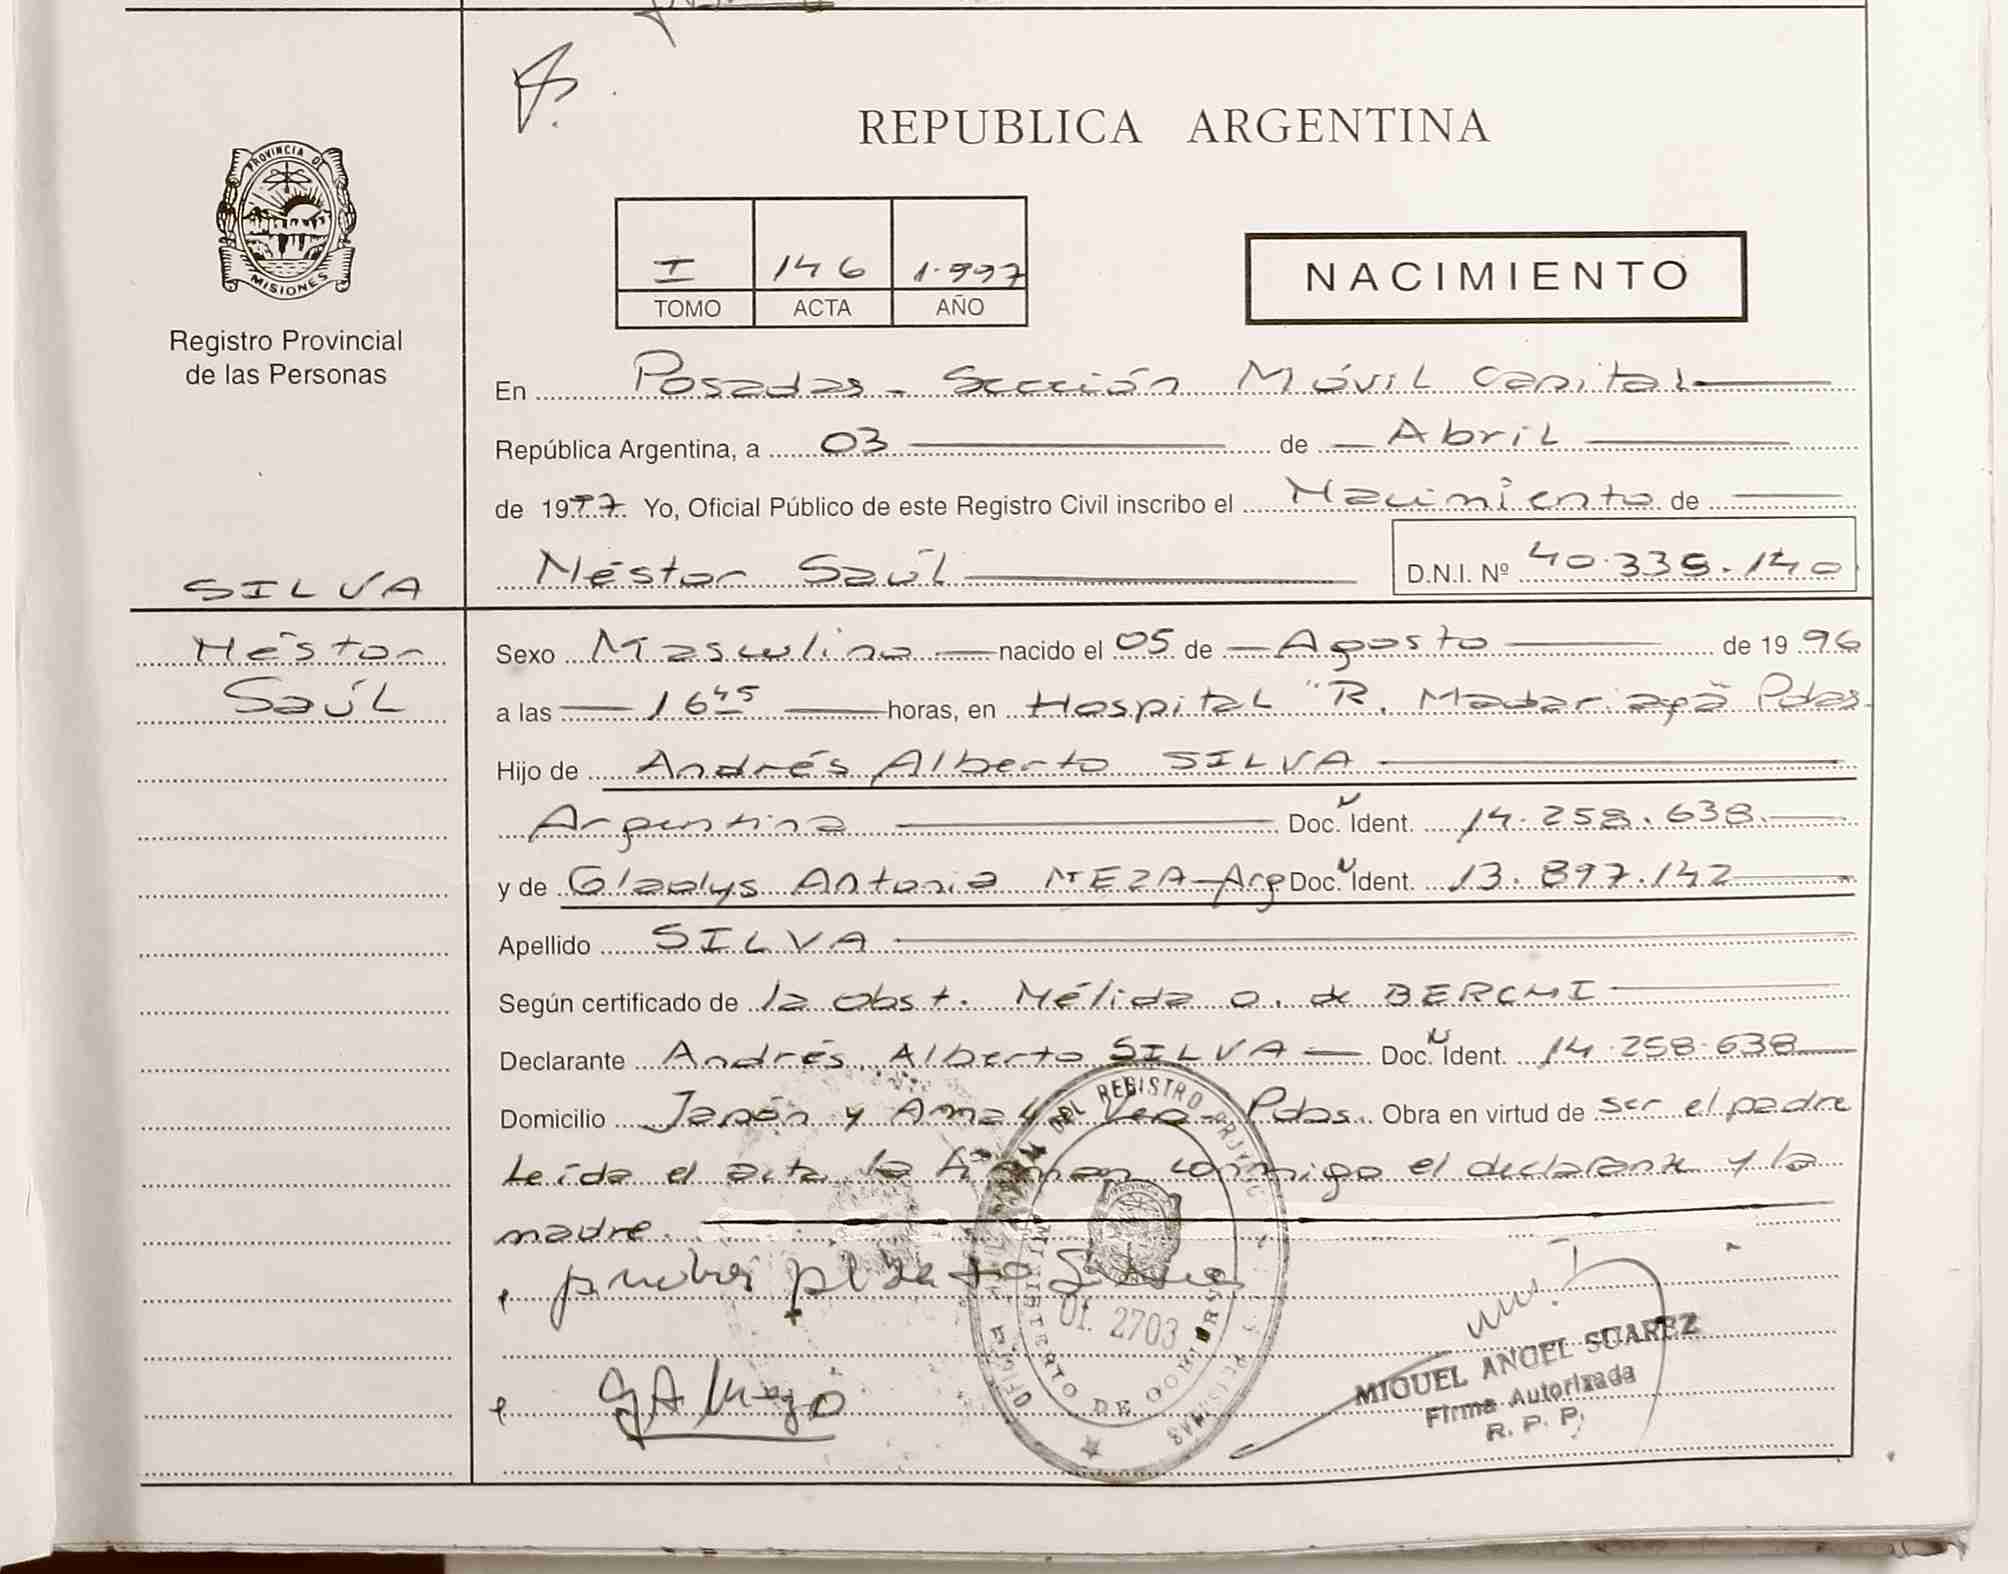 REPUBLICA ARGENTINA
PROVINCIA DE
MISIONES
Registro Provincial
de las Personas
I 146 1.997
TOMO ACTA AÑO
NACIMIENTO
En Posadas - Sección Móvil Capital
República Argentina, a 03 de Abril
de 1997. Yo, Oficial Público de este Registro Civil inscribo el Nacimiento de
Néstor Saúl D.N.I. Nº 40.338.140
SILVA
Néstor
Saúl
Sexo Masculino nacido el 05 de Agosto de 1996
a las 16 45 horas, en Hospital "R. Madariaga" Pdas.
Hijo de Andrés Alberto SILVA
Argentina Doc. N Ident. 14.258.638
y de Gladys Antonia MEZA - Arg Doc. N Ident. 13.897.142
Apellido SILVA
Según certificado de la obst. Nélida O. de BERCHI
Declarante Andrés Alberto SILVA Doc. N Ident. 14.258.638
Domicilio Japón y Amay Vera - Pdas. Obra en virtud de ser el padre
Leída el acta la firman conmigo el declarante y la
madre.
Of. 2703
MINISTERIO DE GOBIERNO
MIGUEL ANGEL SUAREZ
Firma Autorizada
R. P. P.